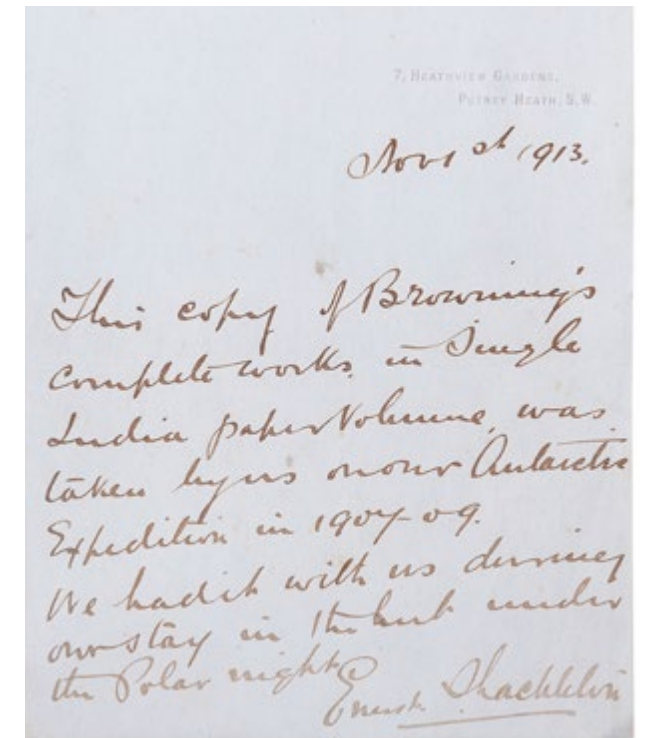 7, HEATHVIEW GARDENS,
PUTNEY HEATH, S.W.
Nov 1st 1913.
This copy of Browning's
complete works, in Single
India paper Volume, was
taken by us on our Antarctic
Expedition in 1907-09.
We had it with us during
our stay in the hut under
the Polar night
Ernest Shackleton